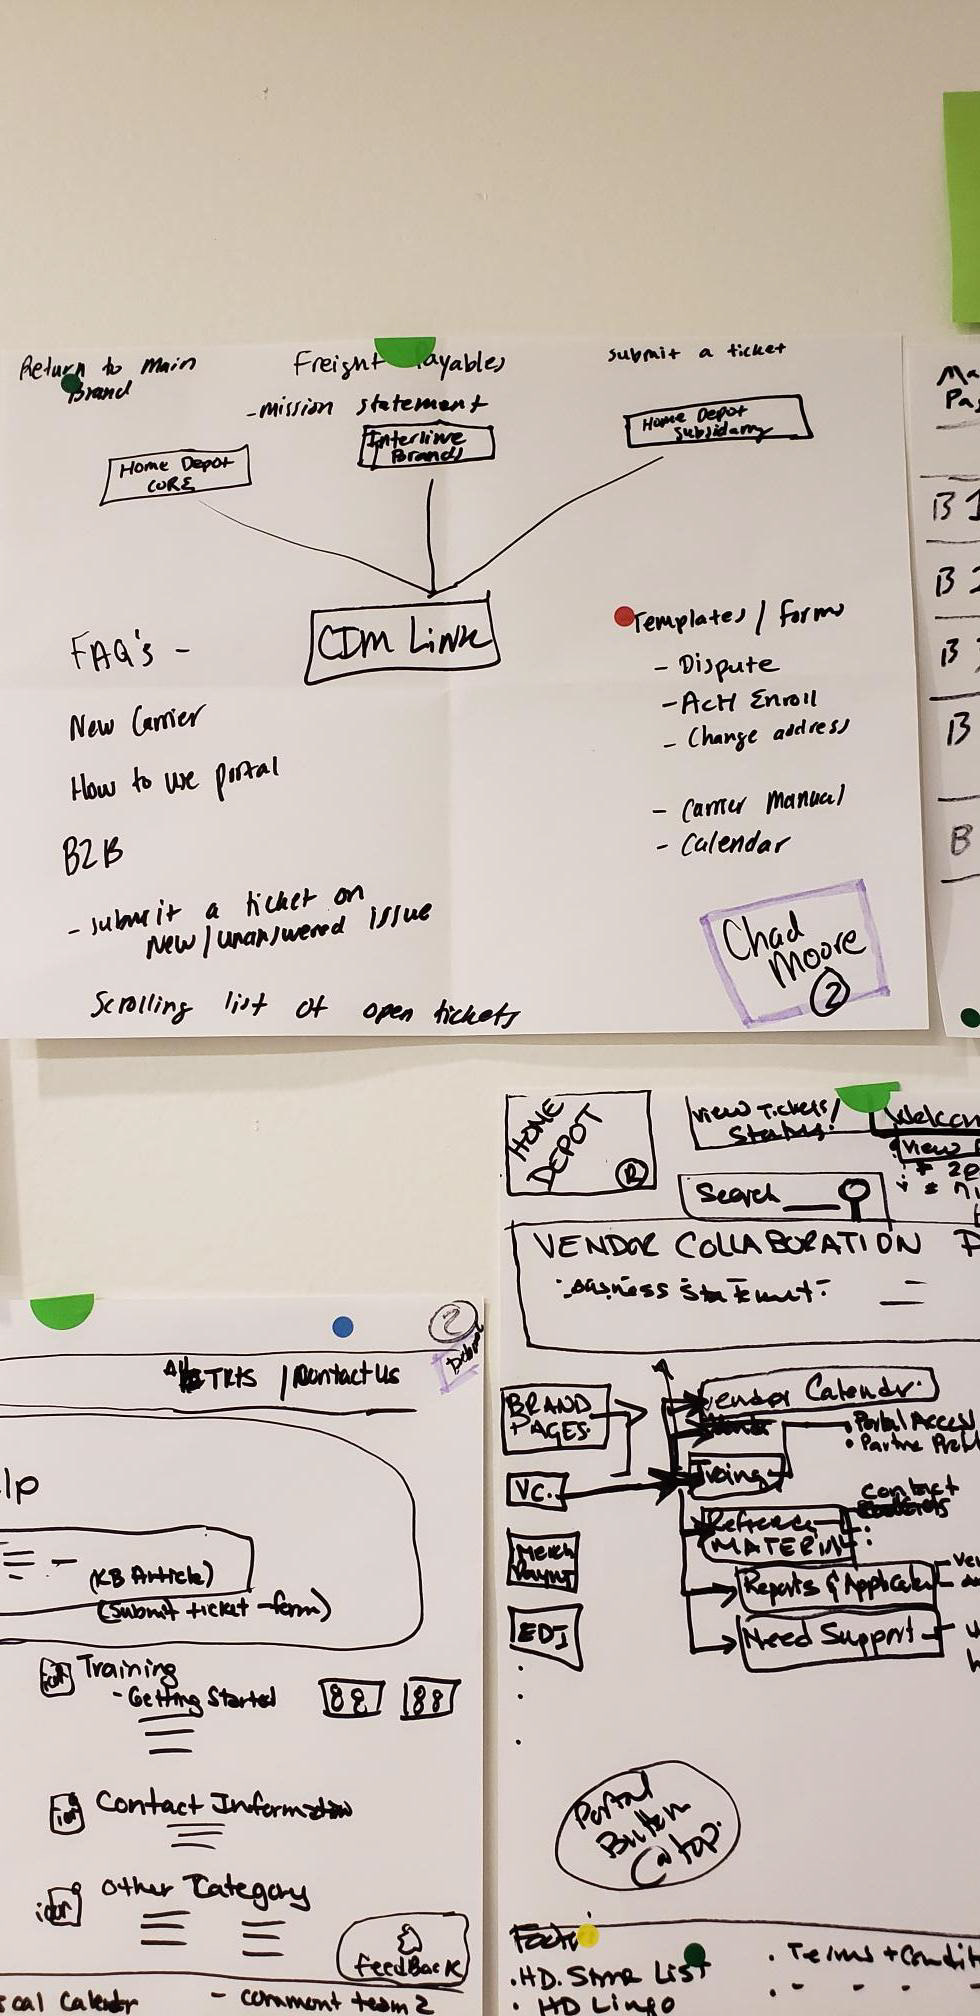 Return to Main
Brand
Freight Payables
submit a ticket
-mission statement
Home Depot
CORE
Interline
Brands
Home Depot
Subsidary
CDM Link
FAQ's -
New Carrier
How to use portal
B2B
- submit a ticket on
New/unanswered issue
Scrolling list of open tickets
Templates / forms
- Dispute
- AcH Enroll
- Change address
- Carrier Manual
- Calendar
Chad
Moore
2
Ma
Pa
B 1
B 2
B
B
B
HOME
DEPOT
R
View Tickets/
Status!
Welcom
View
Search
VENDOR COLLABORATION P
Business Statement:
BRAND
PAGES
VC.
Merch
Paymt
EDI
Vendor Calendr.
Traing
Refrence
MATERIAL
Reports & Applicatn
Need Support
• Portal Access
• Partne Prof
contact
Portal
Button
@ top.
Foote
• HD. Store List
• HD Lingo
• Terms + Condit
2
TKTS | Contact Us
lp
(KB Article)
(Submit ticket form)
Training
- Getting Started
Contact Information
Other Category
FeedBack
cal Calendr
- comment team 2